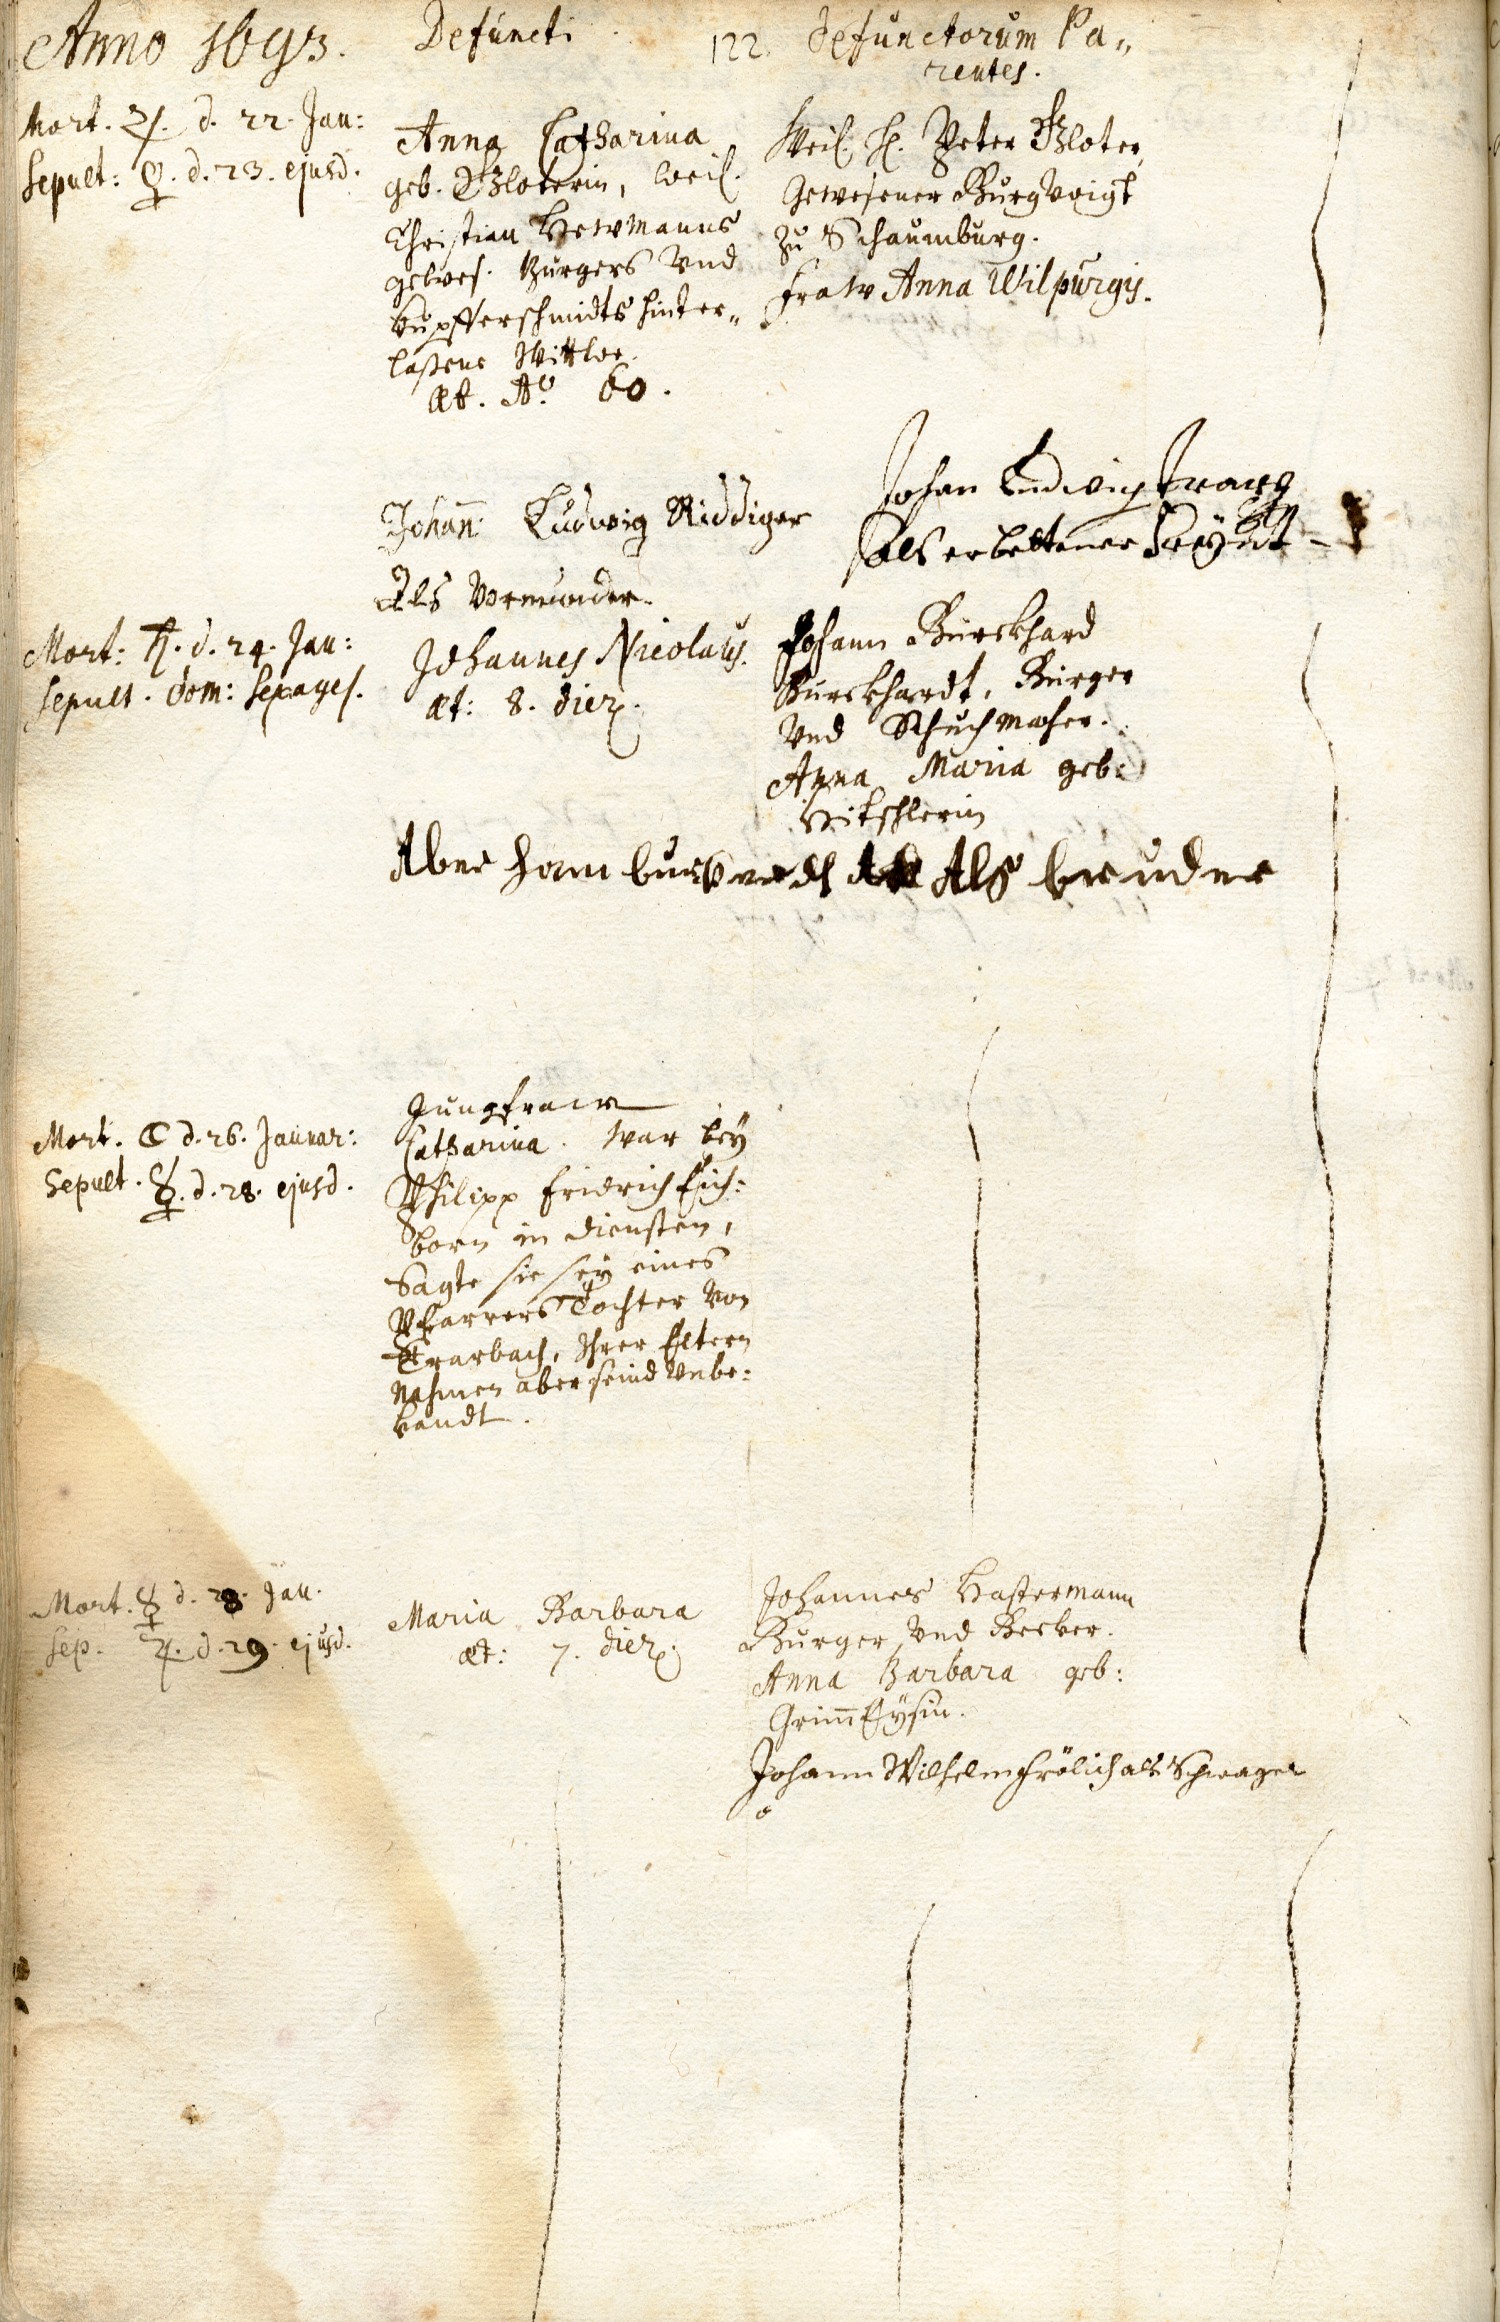 Anno 1693.
Defuncti.
122.
Defunctorum Pa„
rentes.
Mort. ♃. d. 22. Jan:
Sepult: ♀. d. 23. ejusd.
Anna Catharina
geb. , weil.
Christian Hewmanns
gewes. Burgers Vnd
Kupfferschmidts hinter„
laßene Wittwe.
æt. Aõ. 60.
Weil. H. Peter
Gewesener Burgvoigt
zu Schaumburg.
fraw Anna Wilpurgis.
Johan̄ Ludwig Riddiger
Als Vormunder.
Johan Ludwig
als erbettener
Mort: ♄. d. 24. Jan:
Sepult. Dom: Sexages.
Johannes Nicolaus.
æt: 8. dier.
Johann Burckhard
Burckhardt, Burger
Vnd Schuchmacher.
Anna Maria geb:
Hitschlerin
Aber ham burckardt Als bruder
Jungfraw
Mort. ☾ d. 26. Januar:
Sepult. ☿. d. 28. ejusd.
Catharina. War bey
Philipp Fridrich Eich:
born in diensten,
Sagte sie sey eines
Pfarrers Tochter Von
Trarbach, Ihrer Eltern
Nahmen aber seind Vnbe:
kandt.
Mort. ☿ d. 28. Jan.
Sep. ♃. d. 29. ejusd.
Maria Barbara
æt: 7. dier.
Johannes Hastermann
Burger Vnd Becker.
Anna Barbara geb:
Grim̄Eysin.
Johann Wilhelm Frölich als Schwager